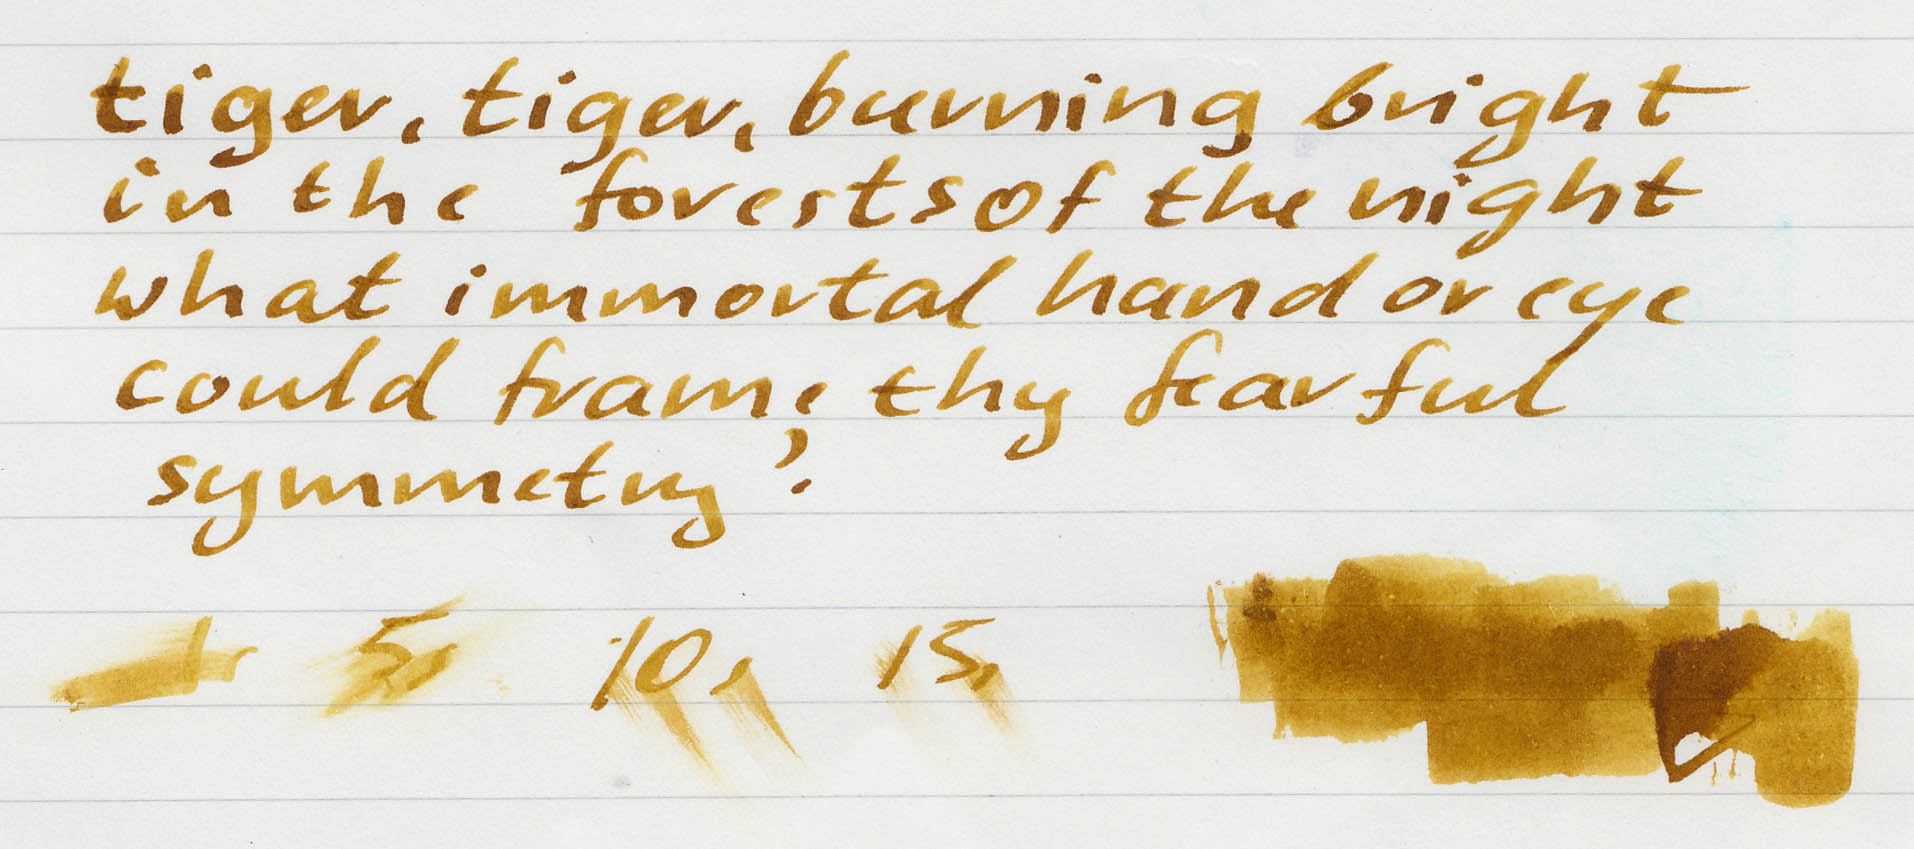 tiger, tiger, burning bright
in the forests of the night
what immortal hand or eye
could frame thy fearful
symmetry?
1s 5s 10s 15s